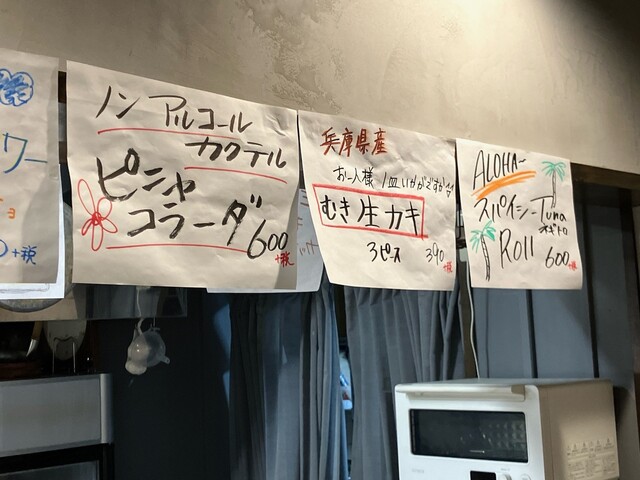 ワー
+税
ノンアルコール
カクテル
ピニャ
コラーダ
600
+税
兵庫県産
お一人様 1皿いかがですか
むき生カキ
3ピース
390
+税
ALOHA~
スパイシーTuna
Roll
600
+税